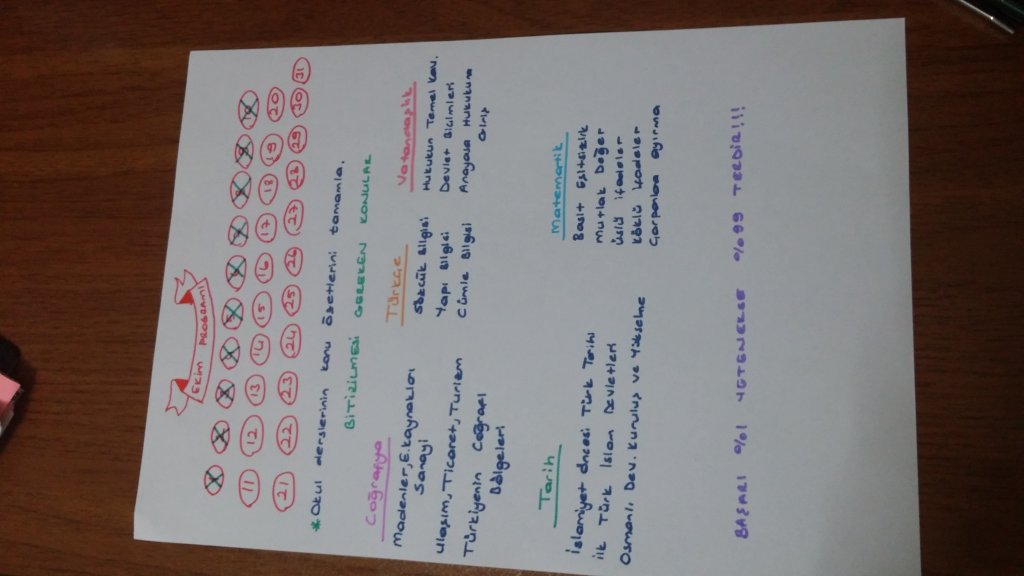 EKİM PROGRAMI
1 2 3 4 5 6 7 8 9 10
11 12 13 14 15 16 17 18 19 20
21 22 23 24 25 26 27 28 29 30 31
*Okul derslerinin konu özetlerini tamamla.
BİTİRİLMESİ GEREKEN KONULAR
Coğrafya
Madenler, E. kaynakları
Sanayi
Ulaşım, Ticaret, Turizm
Türkiyenin Coğrafi
Bölgeleri
Türkçe
Sözcük Bilgisi
Yapı Bilgisi
Cümle Bilgisi
Vatandaşlık
Hukukun Temel Kav.
Devlet Biçimleri
Anayasa Hukukuna
Giriş
Tarih
İslamiyet öncesi Türk Tarihi
İlk Türk İslam Devletleri
Osmanlı Dev. Kuruluş ve Yükselme
Matematik
Basit Eşitsizlik
Mutlak Değer
Üslü ifadeler
Köklü ifadeler
Çarpanlara ayırma
BAŞARI %1 YETENEKSE %99 TERDİR!!!